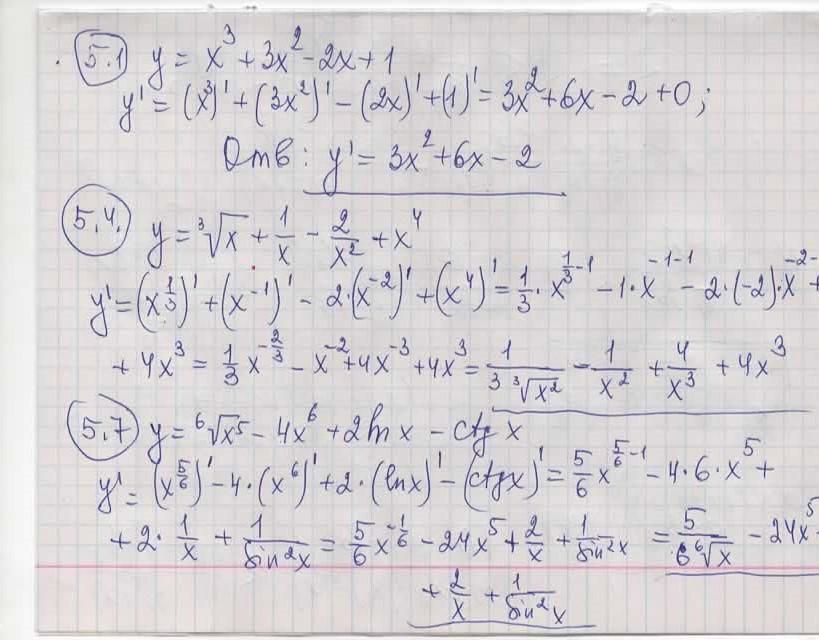 5.1 y = x³ + 3x² - 2x + 1
y' = (x³)' + (3x²)' - (2x)' + (1)' = 3x² + 6x - 2 + 0;
Отв: y' = 3x² + 6x - 2
5.4. y = ³√x + 1/x - 2/x² + x⁴
y' = (x^(1/3))' + (x⁻¹)' - 2·(x⁻²)' + (x⁴)' = 1/3 · x^(1/3-1) - 1·x^(-1-1) - 2·(-2)·x^(-2-
+ 4x³ = 1/3 x^(-2/3) - x⁻² + 4x⁻³ + 4x³ = 1/(3 ³√x²) - 1/x² + 4/x³ + 4x³
5.7 y = ⁶√x⁵ - 4x⁶ + 2ln x - ctg x
y' = (x^(5/6))' - 4·(x⁶)' + 2·(lnx)' - (ctgx)' = 5/6 x^(5/6-1) - 4·6·x⁵ +
+ 2· 1/x + 1/sin²x = 5/6 x^(-1/6) - 24x⁵ + 2/x + 1/sin²x = 5/(6 ⁶√x) - 24x⁵
+ 2/x + 1/sin²x